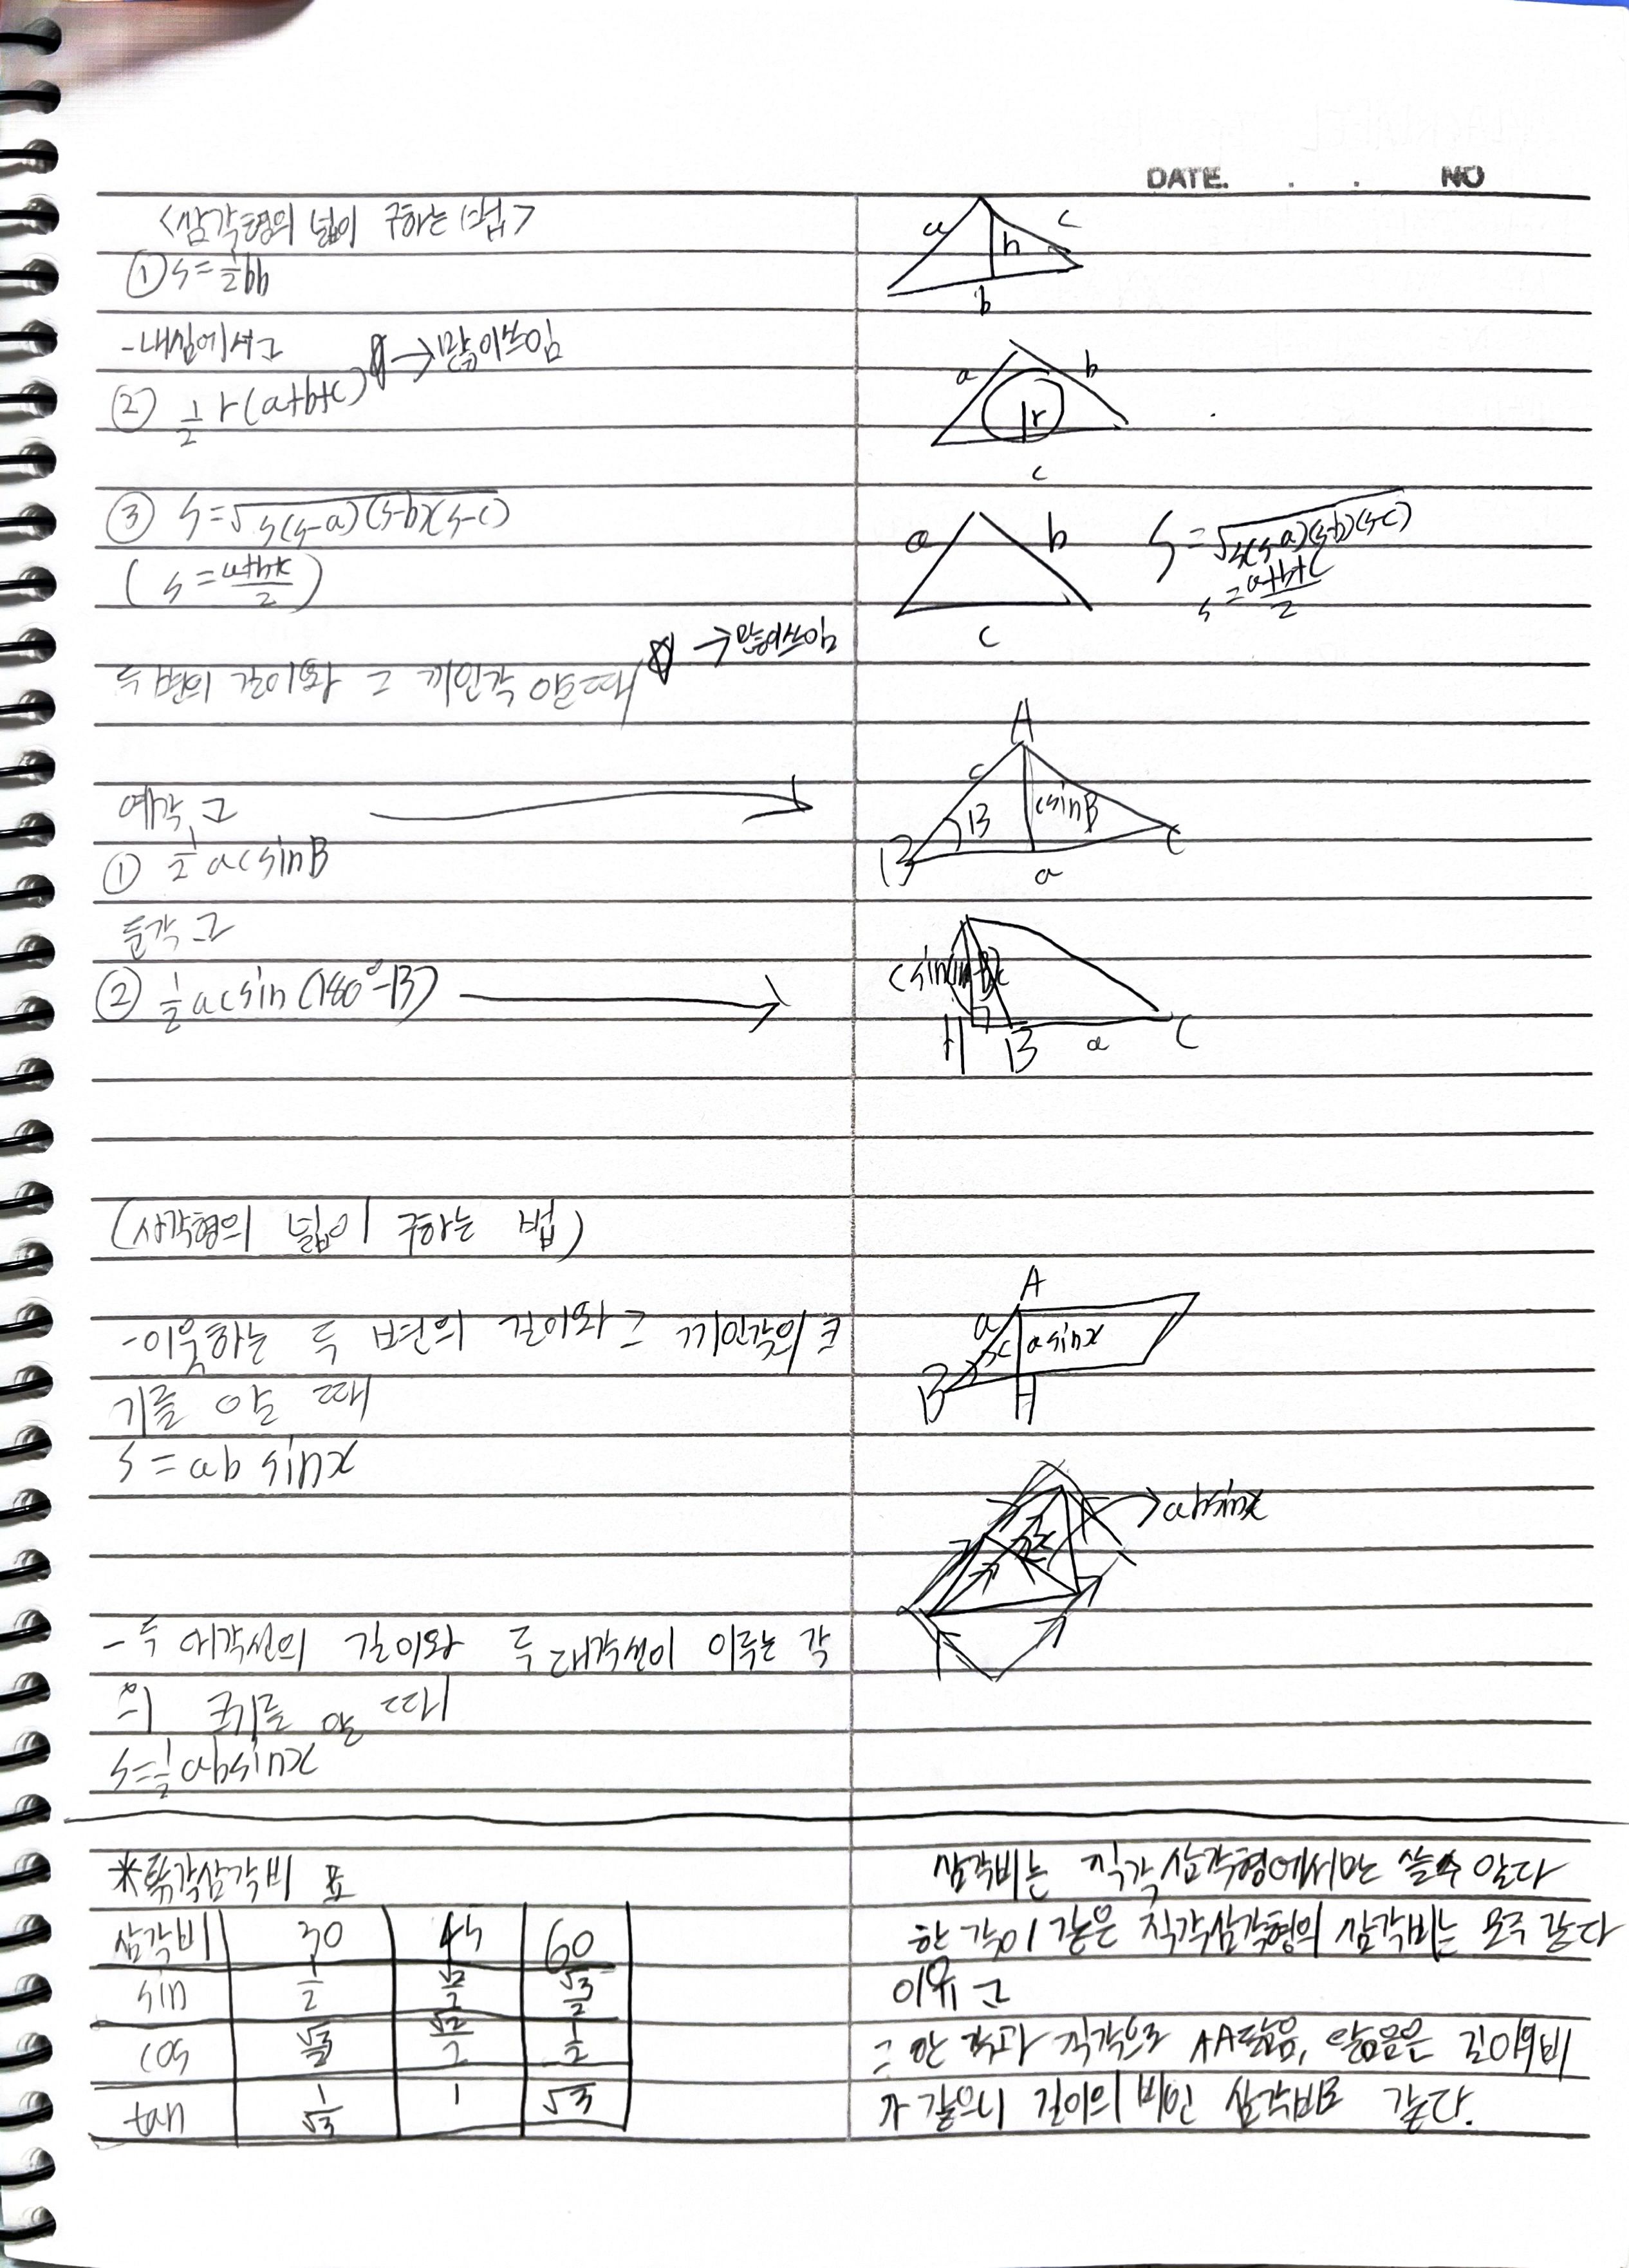 DATE. . . NO
<삼각형의 넓이 구하는 법>
① S=½bh
a c h b
-내심에서그
☆→많이쓰임
② ½ r(a+b+c)
a b r c
③ S=√s(s-a)(s-b)(s-c)
(s=a+b+c/2)
a b c
S=√s(s-a)(s-b)(s-c)
s=a+b+c/2
☆→많이쓰임
두 변의 길이와 그 끼인각 알고있을때
예각 그
① ½ acsinB
A c B csinB B C a
둔각 그
② ½acsin(180°-B)
H B a C
(사각형의 넓이 구하는 법)
-이웃하는 두 변의 길이와 그 끼인각의 크
기를 알 때
S=ab sinx
A a x asinx B H
→absinx
-두 대각선의 길이와 두 대각선이 이루는 각
의 크기를 알 때
S=½absinx
*특수각삼각비 표
삼각비 30 45 60
sin 1/2 √2/2 √3/2
cos √3/2 √2/2 1/2
tan 1/√3 1 √3
삼각비는 직각삼각형에서만 쓸수 있다
한 각이 같은 직각삼각형의 삼각비는 모두 같다
이유 그
그 한 각과 직각으로 AA닮음, 닮음은 길이의비
가 같으니 길이의 비인 삼각비도 같다.